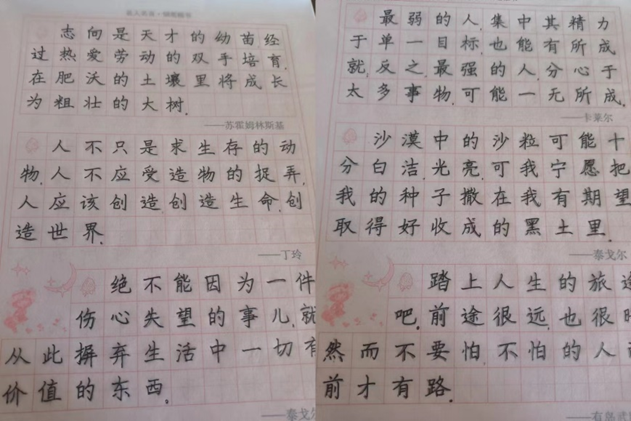 志向是天才的幼苗经
过热爱劳动的双手培育,
在肥沃的土壤里将成长
为粗壮的大树.
——苏霍姆林斯基
人不只是求生存的动
物,人不应受造物的捉弄,
人应该创造,创造生命,创
造世界.
——丁玲
绝不能因为一件
伤心失望的事儿,就
从此摒弃生活中一切有
价值的东西.
——泰戈尔
最弱的人,集中其精力
于单一目标,也能有所成
就,反之,最强的人,分心于
太多事物,可能一无所成.
——卡莱尔
沙漠中的沙粒可能十
分白洁,光亮,可我宁愿把
我的种子撒在我有期望
取得好收成的黑土里.
——泰戈尔
踏上人生的旅途
吧.前途很远,也很
然而不要怕.不怕的人
前才有路.
——有岛武